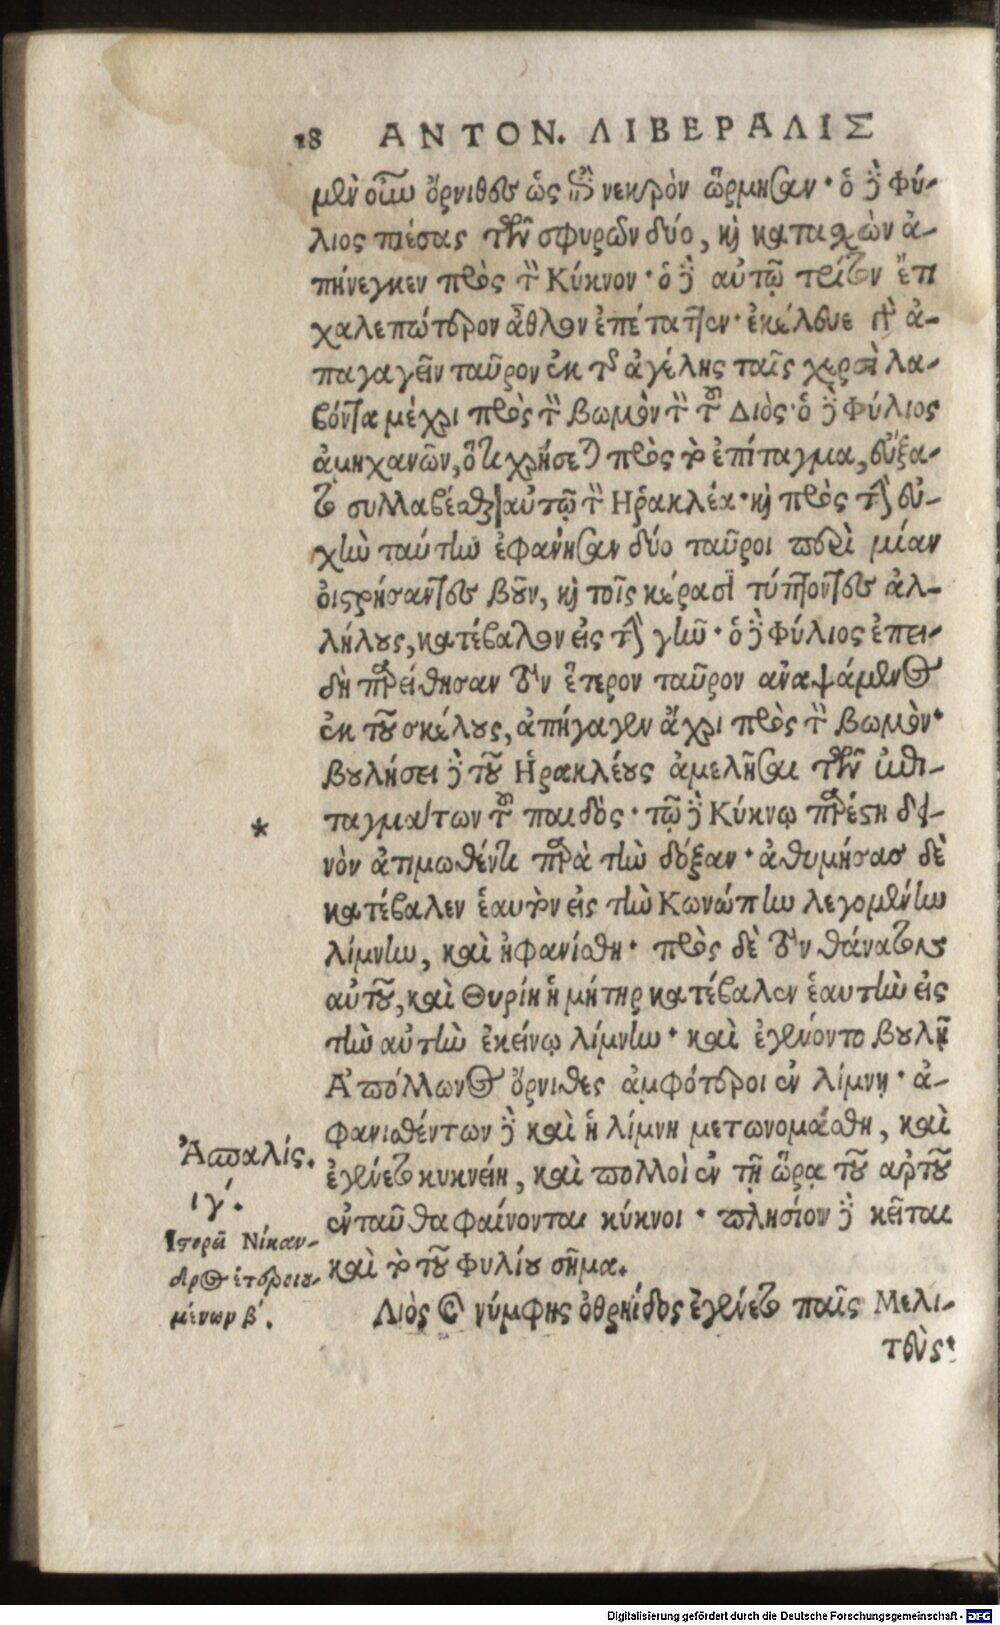 18 ΑΝΤΟΝ. ΛΙΒΕΡΑΛΙΣ
μὲν οὖν ὄρνιθες ὡς ἐπὶ νεκρὸν ὥρμησαν· ὁ δὲ Φύ-
λιος πιέσας τῶν σφυρῶν δύο, καὶ κατασχὼν ἀ-
πήνεγκεν πρὸς τὸν Κύκνον· ὁ δὲ αὐτῷ τρίτον ἔτι
χαλεπώτερον ἆθλον ἐπέταττεν· ἐκέλευε γὰρ ἀ-
παγαγεῖν ταῦρον ἐκ τῆς ἀγέλης ταῖς χερσὶ λα-
βόντα μέχρι πρὸς τὸν βωμὸν τὸν τοῦ Διὸς· ὁ δὲ Φύλιος
ἀμηχανῶν, ὅτι χρήσεται πρὸς τὸ ἐπίταγμα, εὔξα-
το συλλαβέσθαι αὐτῷ τὸν Ηρακλέα· καὶ πρὸς τὴν εὐ-
χὴν ταύτην ἐφάνησαν δύο ταῦροι περὶ μίαν
οἰστρήσαντες βοῦν, καὶ τοῖς κέρασι τύπτοντες ἀλ-
λήλους, κατέβαλον εἰς τὴν γῆν· ὁ δὲ Φύλιος ἐπει-
δὴ παρείθησαν τὸν ἕτερον ταῦρον ἀναψάμενος
ἐκ τοῦ σκέλους, ἀπήγαγεν ἄχρι πρὸς τὸν βωμὸν·
βουλήσει δὲ τοῦ Ἡρακλέους ἀμελῆσαι τῶν ἐπι-
ταγμάτων τοῦ παιδὸς· τῷ δὲ Κύκνῳ παρέστη δει-
νὸν ἀτιμωθέντι παρὰ τὴν δόξαν· ἀθυμήσας δὲ
κατέβαλεν ἑαυτὸν εἰς τὴν Κονώπην λεγομένην
λίμνην, καὶ ἠφανίσθη· πρὸς δὲ τὸν θάνατον
αὐτοῦ, καὶ Θυρίη ἡ μήτηρ κατέβαλεν ἑαυτὴν εἰς
τὴν αὐτὴν ἐκείνῳ λίμνην· καὶ ἐγένοντο βουλῇ
Ἀπόλλωνος ὄρνιθες ἀμφότεροι ἐν λίμνῃ· ἀ-
φανισθέντων δὲ καὶ ἡ λίμνη μετωνομάσθη, καὶ
ἐγένετο κυκνείη, καὶ πολλοὶ ἐν τῇ ὥρᾳ τοῦ ἀρότου
ἐνταῦθα φαίνονται κύκνοι· πλησίον δὲ κεῖται
καὶ τὸ τοῦ Φυλίου σῆμα.
*
Ἀσπαλίς.
ιγʹ.
Ιστορεῖ Νίκαν-
δρος ἑτεροιου-
μένων βʹ.
Διὸς καὶ νύμφης ὀθρηΐδος ἐγένετο παῖς Μελι-
τεὺς·